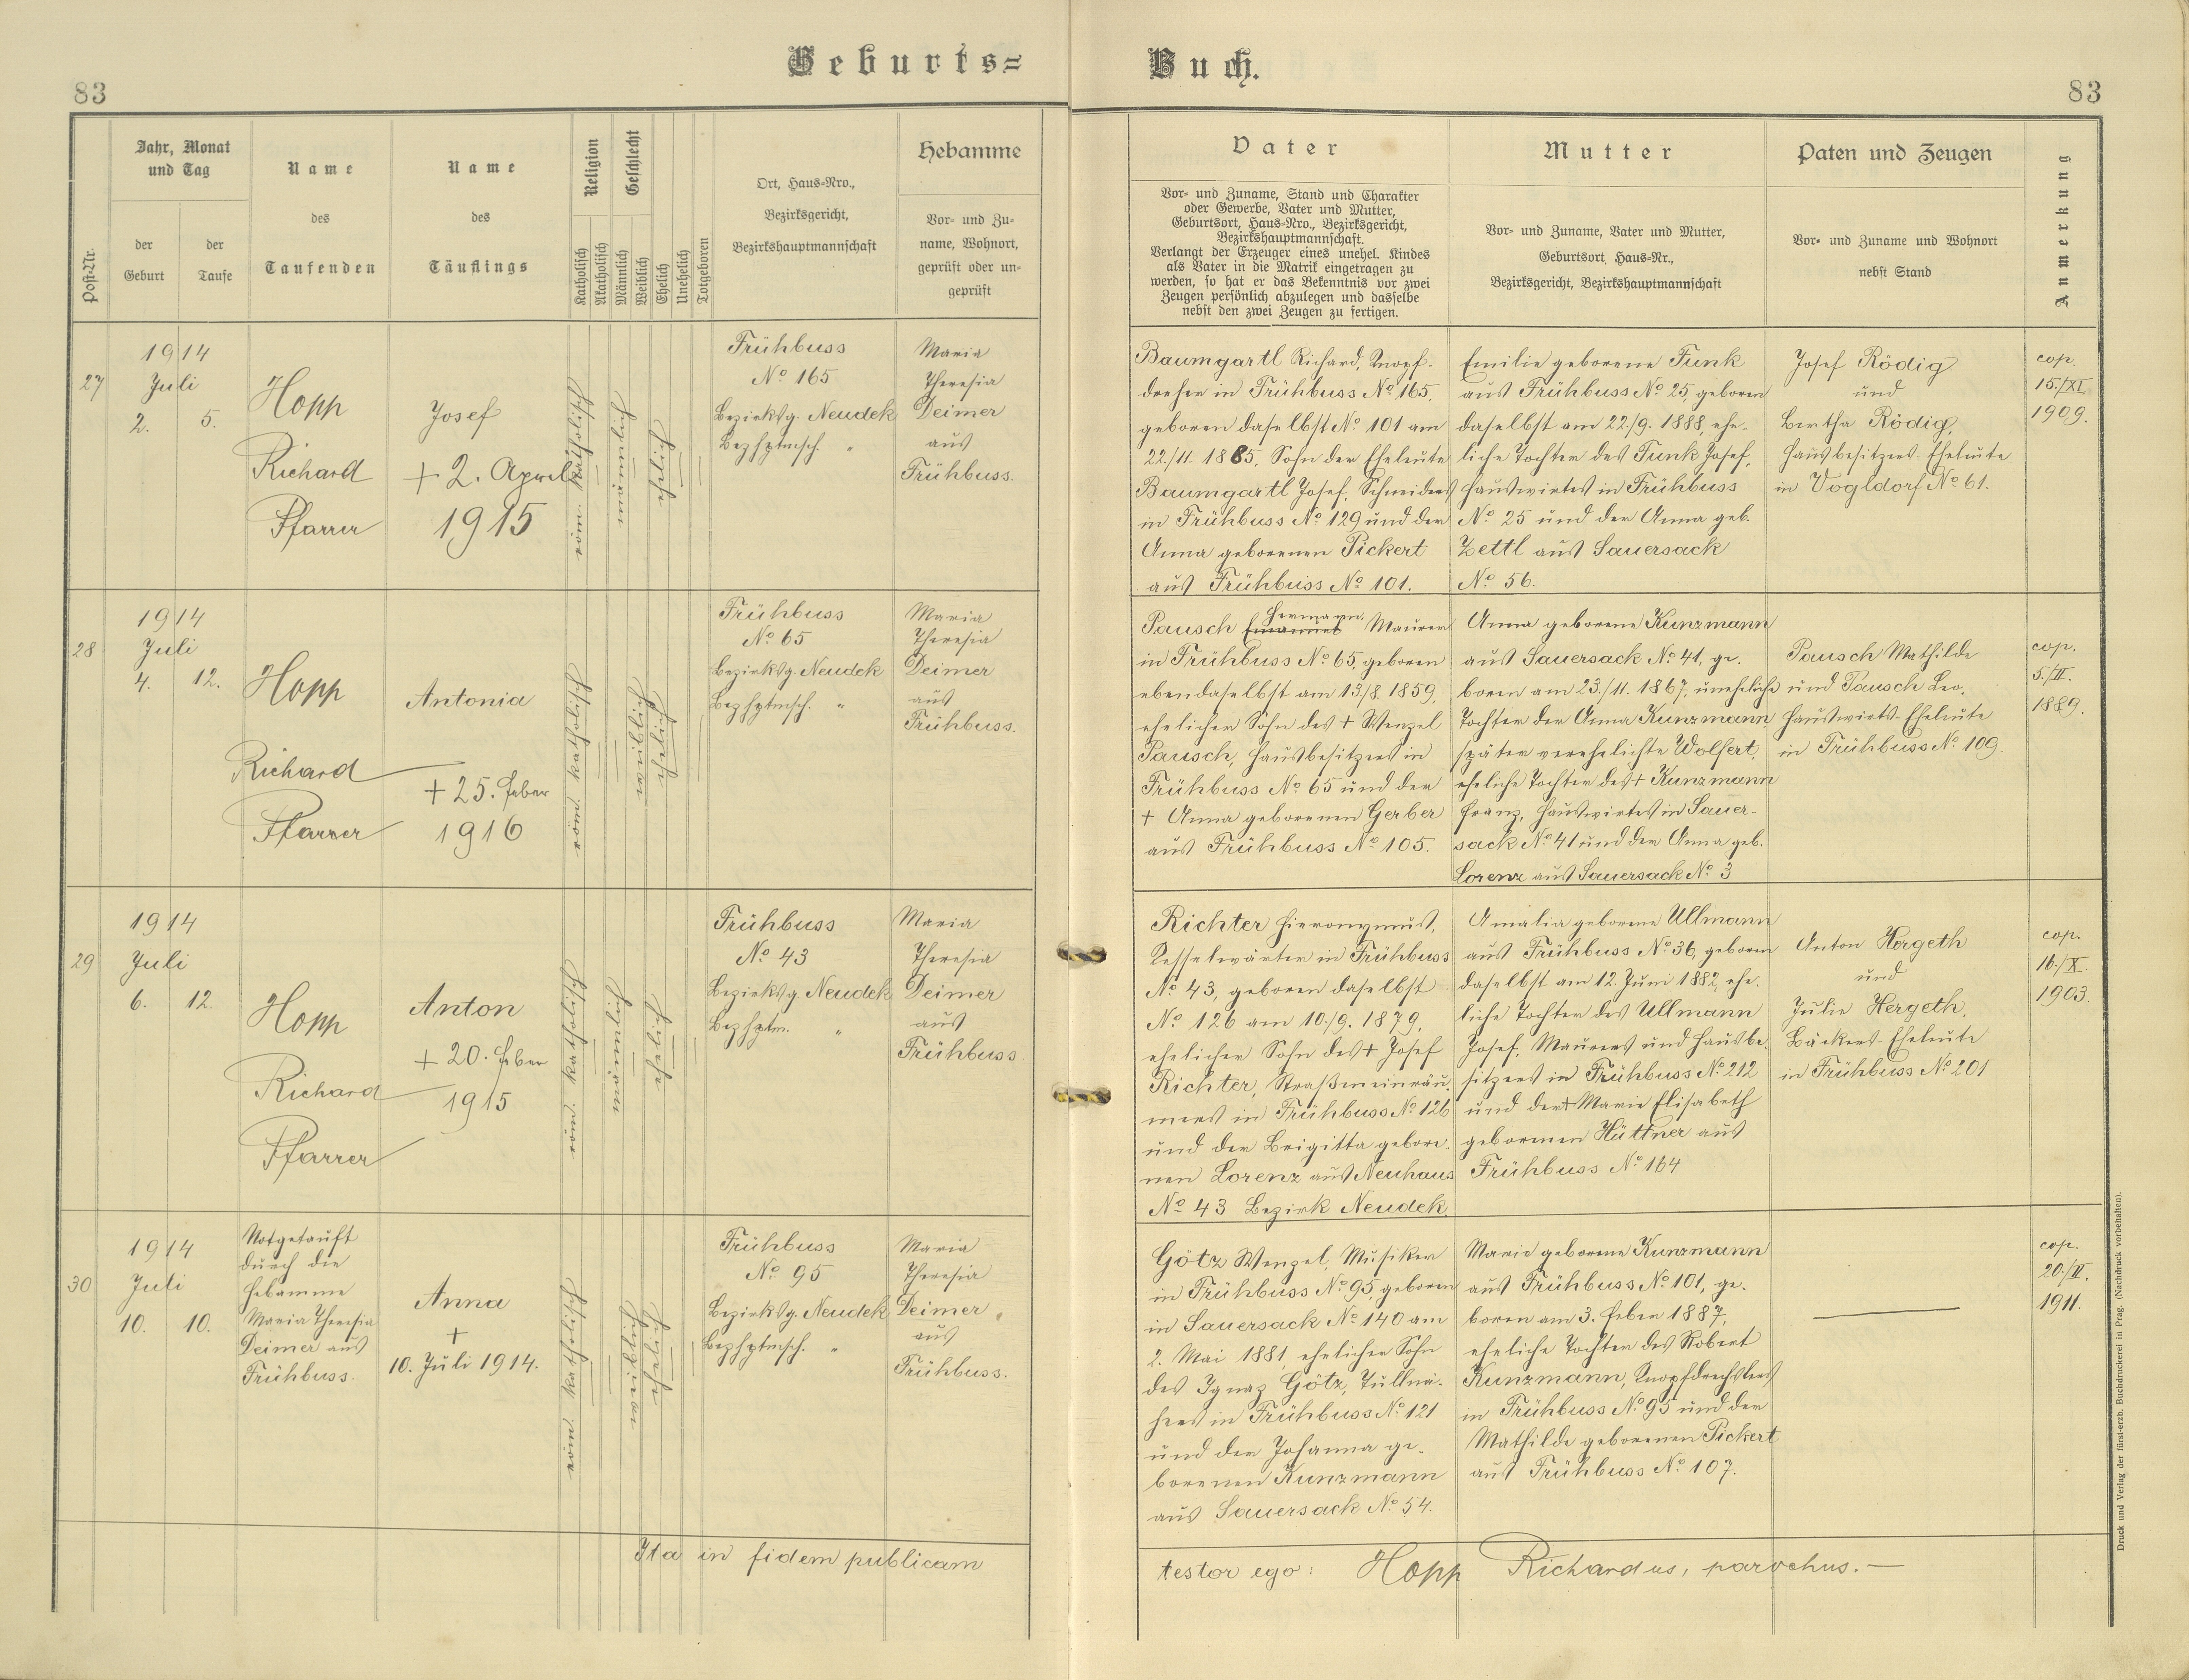 Geburts=
Buch.
83
83
Post-Nr.
Jahr, Monat
und Tag
der
Geburt
der
Taufe
Name
des
Taufenden
Name
des
Täuflings
Religion
Katholisch
Akatholisch
Geschlecht
Männlich
Weiblich
Ehelich
Unehelich
Totgeboren
Ort, Haus=Nro.,
Bezirksgericht,
Bezirkshauptmannschaft
Hebamme
Vor= und Zu=
name, Wohnort,
geprüft oder un=
geprüft
Vater
Vor= und Zuname, Stand und Charakter
oder Gewerbe, Vater und Mutter,
Geburtsort, Haus=Nro., Bezirksgericht,
Bezirkshauptmannschaft.
Verlangt der Erzeuger eines unehel. Kindes
als Vater in die Matrik eingetragen zu
werden, so hat er das Bekenntnis vor zwei
Zeugen persönlich abzulegen und dasselbe
nebst den zwei Zeugen zu fertigen.
Mutter
Vor= und Zuname, Vater und Mutter,
Geburtsort, Haus=Nr.,
Bezirksgericht, Bezirkshauptmannschaft
Paten und Zeugen
Vor= und Zuname und Wohnort
nebst Stand
Anmerkung
27
1914
Juli
2. 5.
Hopp
Richard
Pfarrer
Josef
+ 2. April
1915
röm. katholisch
Frühbuss
No 165
Bezirksg. Neudek
Bezhptmsch. "
Maria
Theresia
Deimer
aus
Frühbuss.
Baumgartl Richard, Knopf-
dreher in Frühbuss No 165,
geboren daselbst No 101 am
22./11. 1885, Sohn der Eheleute
Baumgartl Josef, Schneiders
in Frühbuss No 129 und der
Anna geborenen Pickert
aus Frühbuss No 101.
Emilie geborene Funk
aus Frühbuss No 25, geboren
daselbst am 22./9. 1888, ehe-
liche Tochter des Funk Josef,
Hauswirtes in Frühbuss
No 25 und der Anna geb.
Zettl aus Sauersack
No 56.
Josef Rödig
und
Bertha Rödig,
Hausbesitzers-Eheleute
in Vogldorf No 61.
cop.
15./XI.
1909.
28
1914
Juli
4. 12.
Hopp
Richard
Pfarrer
Antonia
+ 25. Feber
1916
röm. katholisch
Frühbuss
No 65
Bezirksg. Neudek
Bezhptmsch. "
Maria
Theresia
Deimer
aus
Frühbuss.
Hermann
Pausch Emanuel Maurer
in Frühbuss No 65, geboren
ebendaselbst am 13./8. 1859,
ehelicher Sohn des + Wenzel
Pausch, Hausbesitzers in
Frühbuss No 65 und der
+ Anna geborenen Gerber
aus Frühbuss No 105.
Anna geborene Kunzmann
aus Sauersack No 41, ge-
boren am 23./11. 1867, uneheliche
Tochter der Anna Kunzmann
später verehelichte Wolfert,
eheliche Tochter des + Kunzmann
Franz, Hauswirtes in Sauer-
sack No 41 und der Anna geb.
Lorenz aus Sauersack No 3
Pausch Mathilde
und Pausch Leo,
Hauswirts-Eheleute
in Frühbuss No 109.
cop.
5./II.
1889.
29
1914
Juli
6. 12.
Hopp
Richard
Pfarrer
Anton
+ 20. Feber
1915
röm. katholisch
Frühbuss
No 43
Bezirksg. Neudek
Bezhptm. "
Maria
Theresia
Deimer
aus
Frühbuss.
Richter Hieronymus,
Kesselwärter in Frühbuss
No 43, geboren daselbst
No 126 am 10./9. 1879,
ehelicher Sohn des + Josef
Richter, Straßeneinräu-
mers in Frühbuss No 126
und der Brigitta gebore-
nen Lorenz aus Neuhaus
No 43 Bezirk Neudek.
Amalia geborene Ullmann
aus Frühbuss No 36, geboren
daselbst am 12. Juni 1882, ehe-
liche Tochter des Ullmann
Josef, Maurers und Hausbe-
sitzers in Frühbuss No 212
und der + Marie Elisabeth
geborenen Hüttner aus
Frühbuss No 164
Anton Hergeth
und
Julie Hergeth,
Bäckers-Eheleute
in Frühbuss No 201
cop.
16./X.
1903.
30
1914
Juli
10. 10.
Notgetauft
durch die
Hebamme
Maria Theresia
Deimer aus
Frühbuss.
Anna
+
10. Juli 1914.
röm. katholisch
Frühbuss
No 95
Bezirksg. Neudek
Bezhptmsch. "
Maria
Theresia
Deimer "
aus
Frühbuss.
Götz Wenzel, Musiker
in Frühbuss No 95, geboren
in Sauersack No 140 am
2. Mai 1881, ehelicher Sohn
des Ignaz Götz, Tüllnä-
hers in Frühbuss No 121
und der Johanna ge-
borenen Kunzmann
aus Sauersack No 54.
Marie geborene Kunzmann
aus Frühbuss No 101, ge-
boren am 3. Feber 1887,
eheliche Tochter des Robert
Kunzmann, Knopfdrechslers
in Frühbuss No 95 und der
Mathilde geborenen Pickert
aus Frühbuss No 107.
cop.
20./II.
1911.
Ita in fidem publicam
testor ego: Hopp Richardus, parochus.—
Druck und Verlag der fürst-erzb. Buchdruckerei in Prag. (Nachdruck vorbehalten).